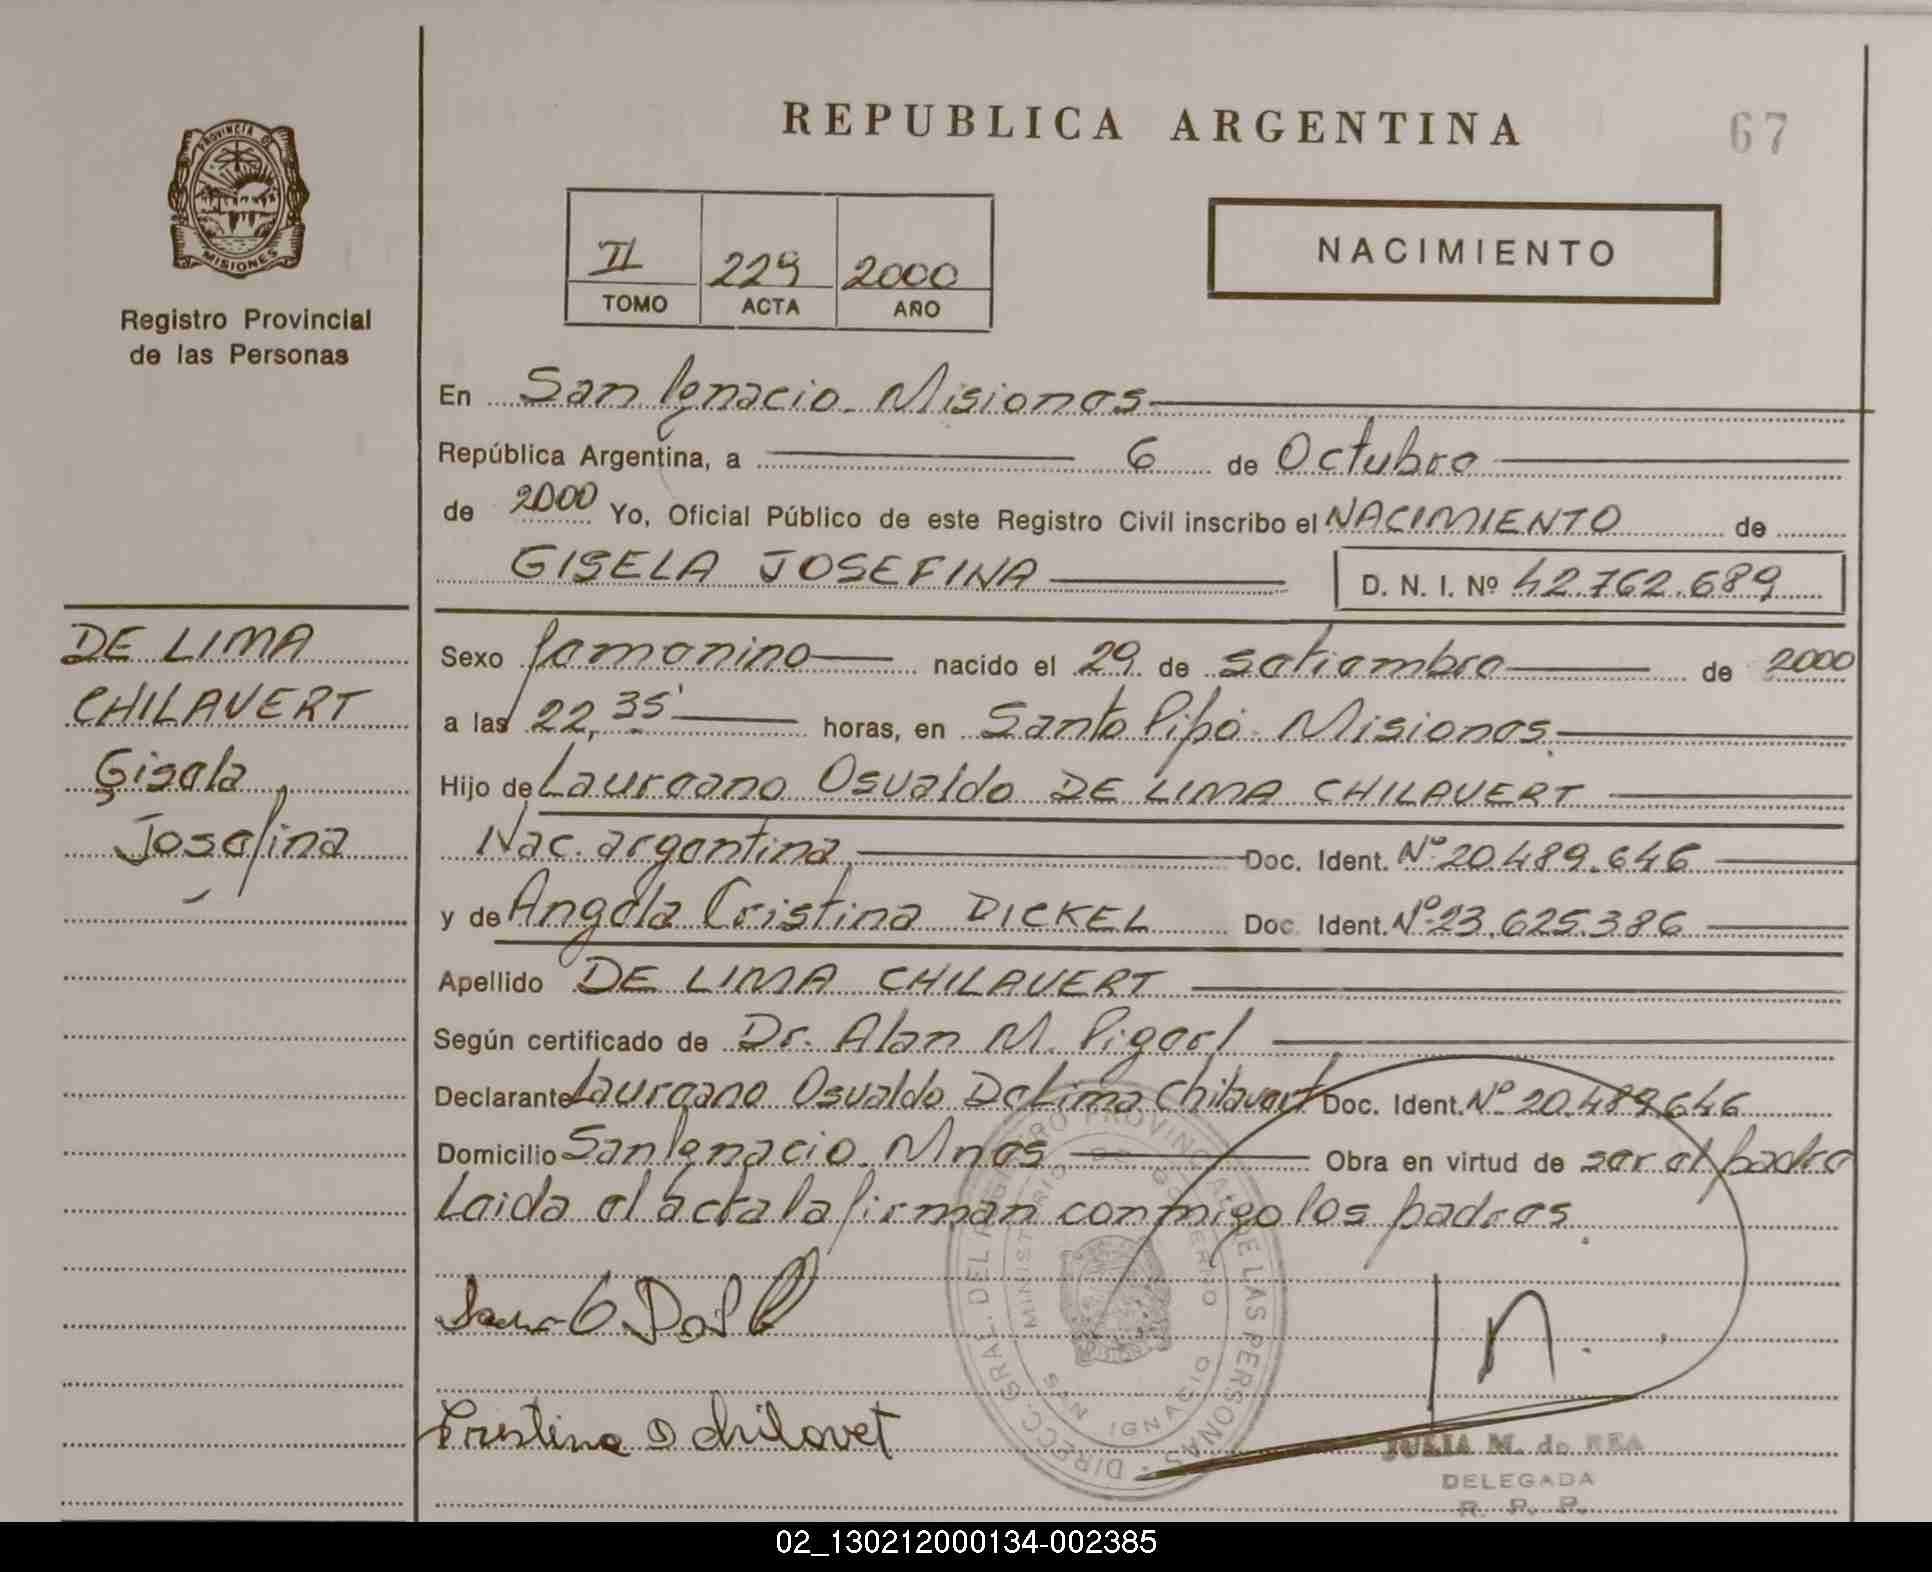 REPUBLICA ARGENTINA
67
PROVINCIA D
MISIONES
Registro Provincial
de las Personas
II 229 2000
TOMO ACTA AÑO
NACIMIENTO
En San Ignacio Misiones
República Argentina, a 6 de Octubre
de 2000 Yo, Oficial Público de este Registro Civil inscribo el NACIMIENTO de
GISELA JOSEFINA D. N. I. Nº 42.762.689
DE LIMA
CHILAVERT
Gisela
Josefina
Sexo femenino nacido el 29 de setiembre de 2000
a las 22,35 horas, en Santo Pipó Misiones
Hijo de Laureano Osvaldo DE LIMA CHILAVERT
Nac. argentina Doc. Ident. Nº 20.489.646
y de Angela Cristina DICKEL Doc. Ident. Nº 23.625.386
Apellido DE LIMA CHILAVERT
Según certificado de Dr. Alan M.
Declarante Laureano Osvaldo De Lima Chilavert Doc. Ident. Nº 20.489.646
Domicilio San Ignacio Mnes Obra en virtud de ser el padre
Leida el acta la firman conmigo los padres.
DIRECC. GRAL. DEL REGISTRO PROVINCIAL DE LAS PERSONAS
MINISTERIO DE GOBIERNO
SAN IGNACIO
Cristina D chilavet
JULIA M. de REA
DELEGADA
R. P. P.
02_130212000134-002385